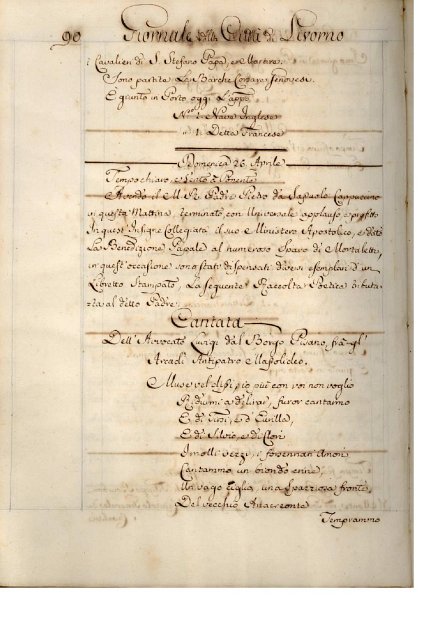 90 Giornale della Città di Livorno
i Cavalieri di S. Stefano Papa, e Martire.
Sono partite Le Barche Corsare
E giunto in Porto oggi
N.° 1. Nave Inglese
1. Detta Francese
Domenica 26 Aprile
Tempo chiaro, e Vento a Ponente
Avendo il M. R. Padre Pietro da Cappuccino
in questa Mattina terminato con Universale applauso, e profitto
In quest' Insigne Collegiata il suo Ministero Apostolico, e data
La Benedizione Papale al numeroso sparo di Mortaletti,
in quest' occasione sono stati dispensati diversi esemplari d'un
Libretto Stampato, La seguente Raccolta Poetica
al detto Padre
Cantata
Dell' Avvocato Luigi dal Borgo Pisano, fra gl'
Arcadi Antipatro
Muse più con voi non voglio
furor cantammo
E di Tirsi, e d'Eurilla,
E di Silvio, e di Clori
I molli vezzi, i
Cantammo un biondo crine,
Un vago ciglio, una spaziosa fronte,
Del vecchio Anacreonte
Temprammo